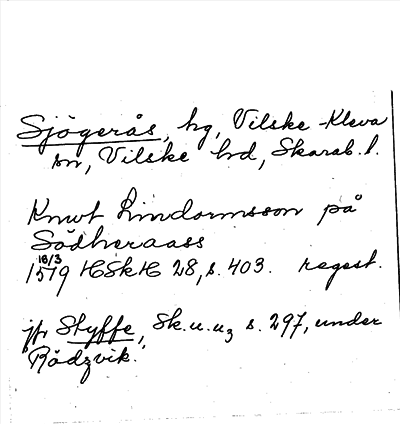 Sjögerås, hg, Vilske-Kleva
sn, Vilske hd, Skarab. l.
Knut Lindormsson på
Södheraass
16/3
1519 HSkH 28, s. 403. regest.
jfr Styffe, Sk.u.u3 s. 297, under
Rödzvik.